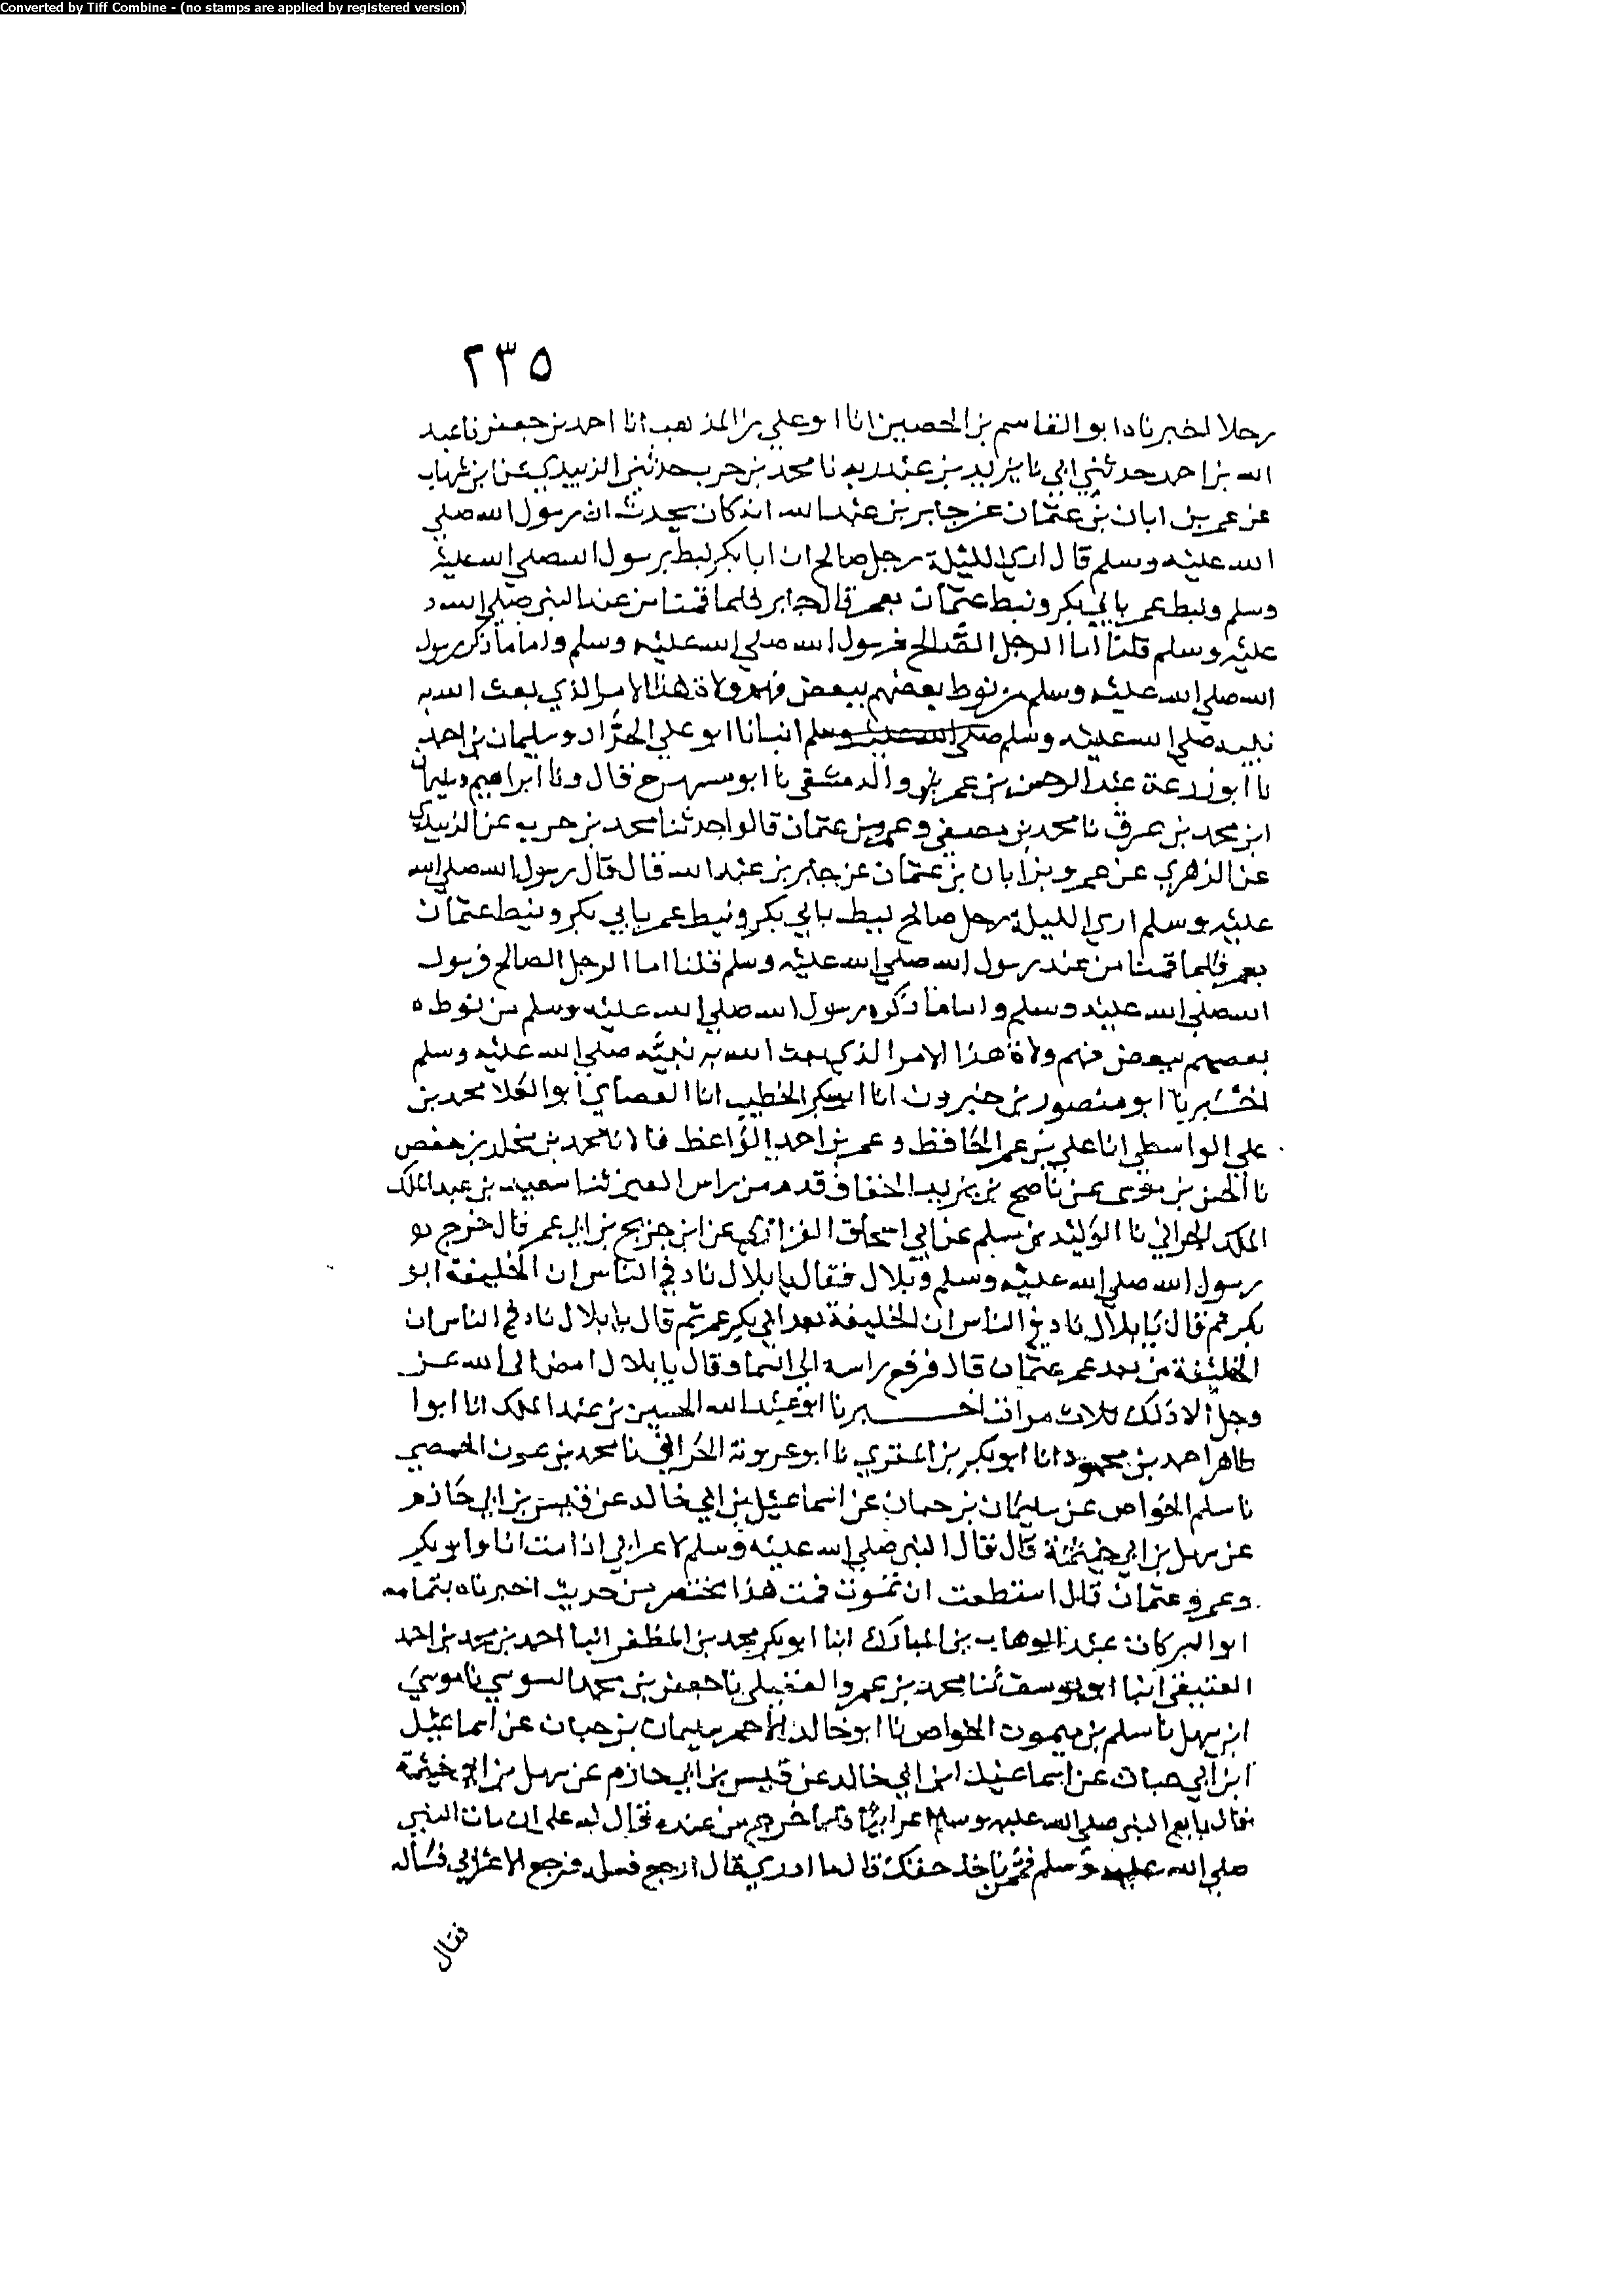 Converted by Tiff Combine - (no stamps are applied by registered version)
٢٣٥
رجلا اخبرنا ابو القاسم بن الحصين انا ابو علي بن المذهب انا احمد بن جعفر نا عبد
الله بن احمد حدثني ابي نا يزيد بن عبد ربه نا محمد بن حرب حدثني الزبيدي عن ابن شهاب
عن عمر بن ابان بن عثمان عن جابر بن عبد الله انه كان يحدث ان رسول الله صلي
الله عليه وسلم قال اري الليلة رجل صالح ان ابا بكر نيط برسول الله صلي الله عليه
وسلم ونيط عمر بابي بكر ونيط عثمان بعمر قال جابر فلما قمنا من عند النبي صلي الله
عليه وسلم قلنا اما الرجل الصالح فرسول الله صلي الله عليه وسلم واما ما ذكر رسول
الله صلي الله عليه وسلم من نوط بعضهم ببعض فهم ولاة هذا الامر الذي بعث الله به
نبيه صلي الله عليه وسلم صلي الله عليه وسلم انبانا ابو علي الحداد وسليمان بن احمد
نا ابو زرعة عبد الرحمن بن عمرو الدمشقي نا ابو مسهر ح قال ونا ابراهيم
ابن محمد بن عرق نا محمد بن مصفي وعمرو بن عثمان قالوا حدثنا محمد بن حرب عن الزبيدي
عن الزهري عن عمرو بن ابان بن عثمان عن جابر بن عبد الله قال قال رسول الله صلي الله
عليه وسلم اري الليلة رجل صالح نيط بابي بكر ونيط عمر بابي بكر ونيط عثمان
بعمر فلما قمنا من عند رسول الله صلي الله عليه وسلم قلنا اما الرجل الصالح فرسول
الله صلي الله عليه وسلم واما ما ذكره رسول الله صلي الله عليه وسلم من نوط ه
بعضهم ببعض فهم ولاة هذا الامر الذي بعث الله به نبيه صلي الله عليه وسلم
اخبرنا ابو منصور بن خيرون انا ابو بكر الخطيب انا القضاي ابو العلا محمد بن
علي الواسطي انا علي بن عمر الحافظ وعمر بن احمد الواعظ قالا نا محمد بن مخلد بن حفص
نا الحسن بن موسى عن ناصح بن يزيد الخفاف قدم من راس العين ثنا سعيد بن عبد الملك
الملك الحراني نا الوليد بن مسلم عن ابي اسحاق الفزاري عن ابن جريج بن ابي عمر قال خرج
رسول الله صلي الله عليه وسلم وبلال فقال يا بلال ناد في الناس ان الخليفة ابو
بكر ثم قال يا بلال ناد في الناس ان الخليفة بعد ابي بكر عمر ثم قال يا بلال ناد في الناس ان
الخليفة من بعد عمر عثمان قال فرفع راسه الي السما وقال يا بلال امض ابى الله عز
وجل الا ذلك ثلاث مرات اخبرنا ابو عبد الله الحسين بن عبد الملك انا ابوا
طاهر احمد بن محمود انا ابو بكر بن المقري نا ابو عروبة الحراني نا محمد بن عون الحمصي
نا سلم الخواص عن سليمان بن حمان عن اسماعيل بن ابي خالد عن قيس بن ابي حازم
عن سهل بن ابي خيثمة قال قال النبي صلي الله عليه وسلم لاعرابي اذا مت انا وابو بكر
وعمر وعثمان فان استطعت ان تموت فمت هذا مختصر من حديث اخبرناه بتمامه
ابو البركات عبد الوهاب بن المبارك انبا ابو بكر محمد بن المظفر انبا احمد بن محمد بن احمد
العتيقي انبا ابو يوسف ثنا محمد بن عمرو العقيلي نا جعفر بن محمد السوسي نا موسي
ابن سهل نا سلم بن ميمون الخواص نا ابو خالد الاحمر سليمان بن حبان عن اسماعيل
ابن ابي حبان عن اسماعيل ابن ابي خالد عن قيس بن ابي حازم عن سهل بن ابي خيثمة
قال بايع النبي صلي الله عليه وسلم اعرابيا فلما خرج من عنده قال له علي ان مات النبي
صلي الله عليه وسلم فمن ياخذ حقك قال ما ادري قال ارجع فسله فرجع الاعرابي فساله
فقال